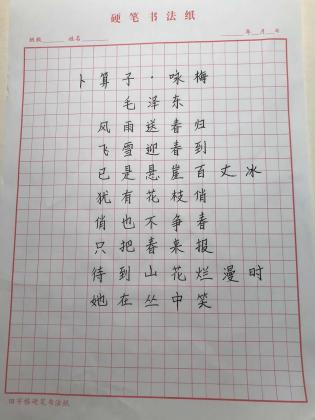 硬笔书法纸
班级 姓名 年 月 日
卜算子·咏梅
毛泽东
风雨送春归
飞雪迎春到
已是悬崖百丈冰
犹有花枝俏
俏也不争春
只把春来报
待到山花烂漫时
她在丛中笑
田字格硬笔书法纸